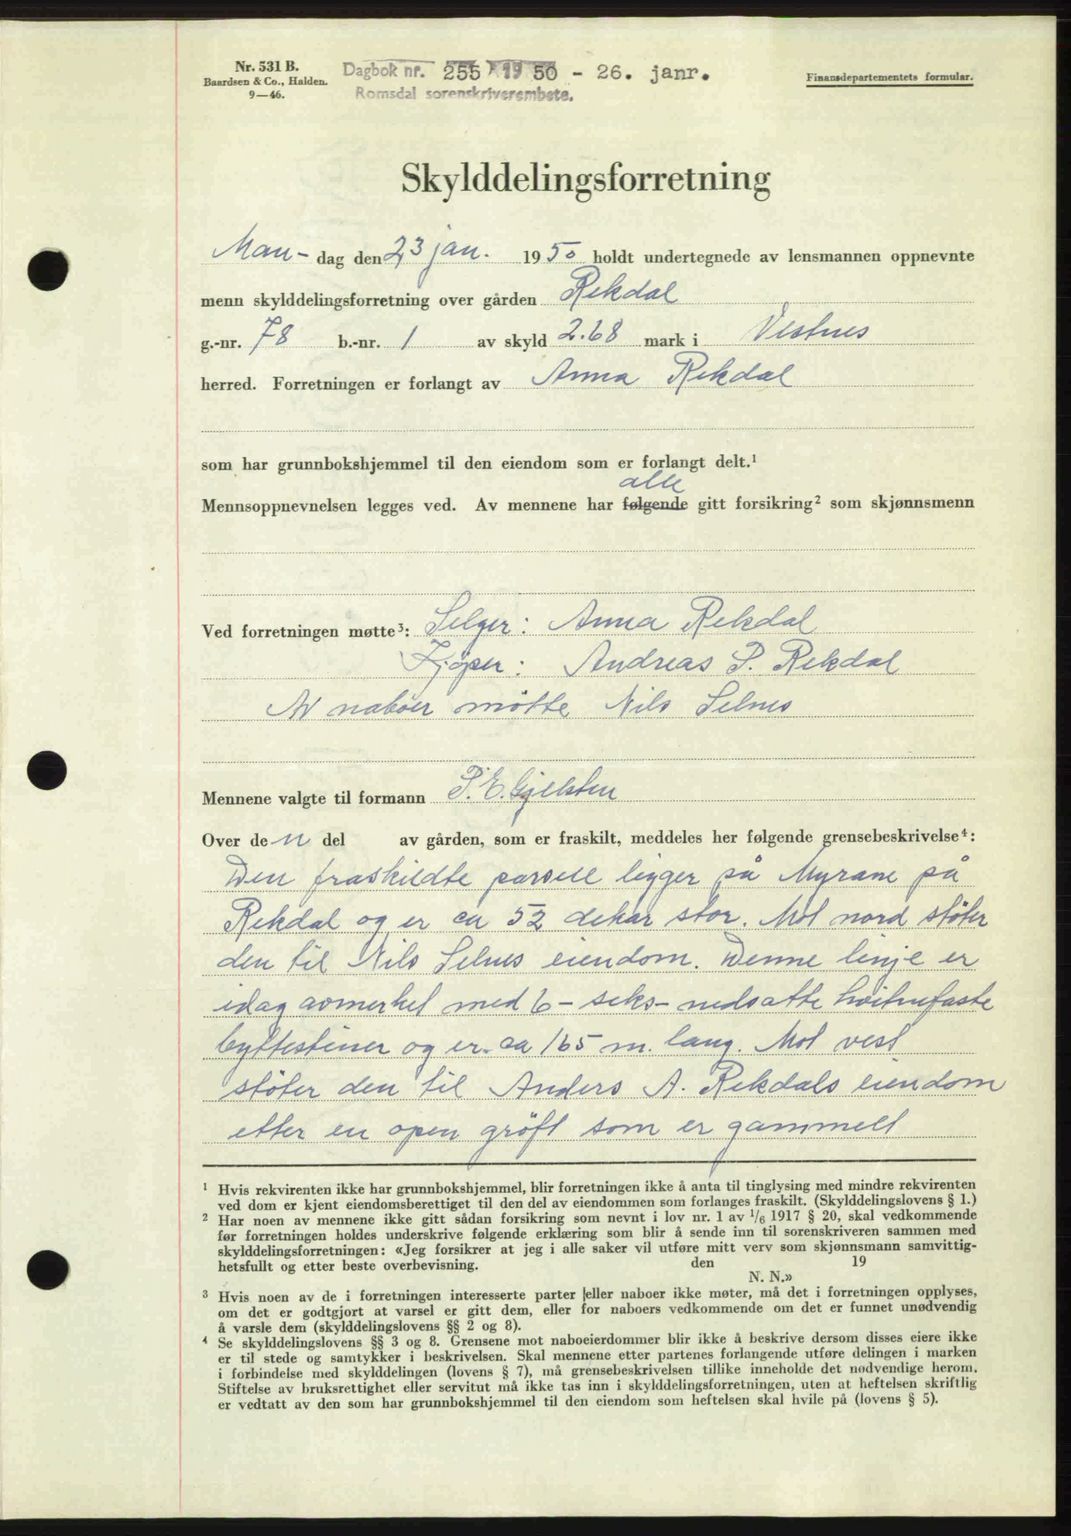 Nr. 531 B.
Baardsen & Co., Halden.
9—46.
Dagbok nr. 255 1950 - 26. janr.
Romsdal sorenskriverembete.
Finansdepartementets formular.
Skylddelingsforretning
Man- dag den 23 jan. 1950 holdt undertegnede av lensmannen oppnevnte
menn skylddelingsforretning over gården Rekdal
g.-nr. 78 b.-nr. 1 av skyld 2.68 mark i Vestnes
herred. Forretningen er forlangt av Anna Rekdal
som har grunnbokshjemmel til den eiendom som er forlangt delt.¹
alle
Mennsoppnevnelsen legges ved. Av mennene har følgende gitt forsikring² som skjønnsmenn
Ved forretningen møtte³: Selger: Anna Rekdal
Kjøper: Andreas P. Rekdal
Av naboer møtte Nils Selnes
Mennene valgte til formann P. E. Gjelsten
Over de n del av gården, som er fraskilt, meddeles her følgende grensebeskrivelse⁴:
Den fraskildte parsell ligger på Myrane på
Rekdal og er ca 52 dekar stor. Mot nord støter
den til Nils Selnes eiendom. Denne linje er
idag avmerket med 6 - seks - nedsatte hvitnefaste
byttesteiner og er ca 165 m. lang. Mot vest
støter den til Anders A. Rekdals eiendom
etter en open grøft som er gammelt
¹ Hvis rekvirenten ikke har grunnbokshjemmel, blir forretningen ikke å anta til tinglysing med mindre rekvirenten
ved dom er kjent eiendomsberettiget til den del av eiendommen som forlanges fraskilt. (Skylddelingslovens § 1.)
² Har noen av mennene ikke gitt sådan forsikring som nevnt i lov nr. 1 av 1/6 1917 § 20, skal vedkommende
før forretningen holdes underskrive følgende erklæring som blir å sende inn til sorenskriveren sammen med
skylddelingsforretningen: «Jeg forsikrer at jeg i alle saker vil utføre mitt verv som skjønnsmann samvittig-
hetsfullt og etter beste overbevisning. den 19
N. N.»
³ Hvis noen av de i forretningen interesserte parter eller naboer ikke møter, må det i forretningen opplyses,
om det er godtgjort at varsel er gitt dem, eller for naboers vedkommende om det er funnet unødvendig
å varsle dem (skylddelingslovens §§ 2 og 8).
⁴ Se skylddelingslovens §§ 3 og 8. Grensene mot naboeierdommer blir ikke å beskrive dersom disses eiere ikke
er til stede og samtykker i beskrivelsen. Skal mennene etter partenes forlangende utføre delingen i marken
i forbindelse med skylddelingen (lovens § 7), må grensebeskrivelsen tillike inneholde det nødvendige herom.
Stiftelse av bruksrettighet eller servitut må ikke tas inn i skylddelingsforretningen, uten at heftelsen skriftlig
er vedtatt av den som har grunnbokshjemmel til den eiendom som heftelsen skal hvile på (lovens § 5).